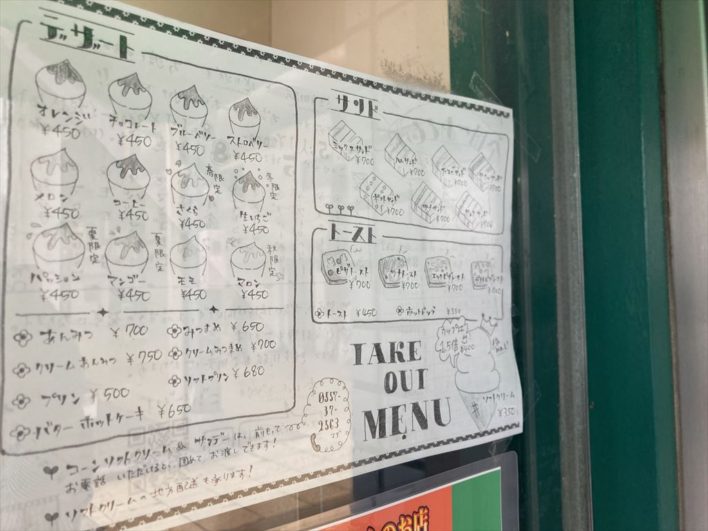 デザート
オレンジ
¥450
チョコレート
¥450
ブルーベリー
¥450
ストロベリー
¥450
メロン
¥450
コーヒー
¥450
春限定
さくら
¥450
冬限定
生いちご
¥450
パッション
¥450
夏限定
マンゴー
¥450
夏限定
モモ
¥450
マロン
¥450
秋限定
あんみつ ¥700
みつまめ ¥650
クリームあんみつ ¥750
クリームみつまめ ¥700
プリン ¥500
ソフトプリン ¥680
バターホットケーキ ¥650
サンド
ミックスサンド
¥700
¥700
¥700
¥700
¥700
トースト
ピザトースト
¥700
¥700
¥700
¥700
トースト ¥450
ホットドッグ
TAKE
OUT
MENU
ソフトクリーム
¥350
0557-
37-
2563
コーンソフトクリーム
お電話いただけると、固めてお渡しできます!
ソフトクリームの地方配送も承ります!
のお店